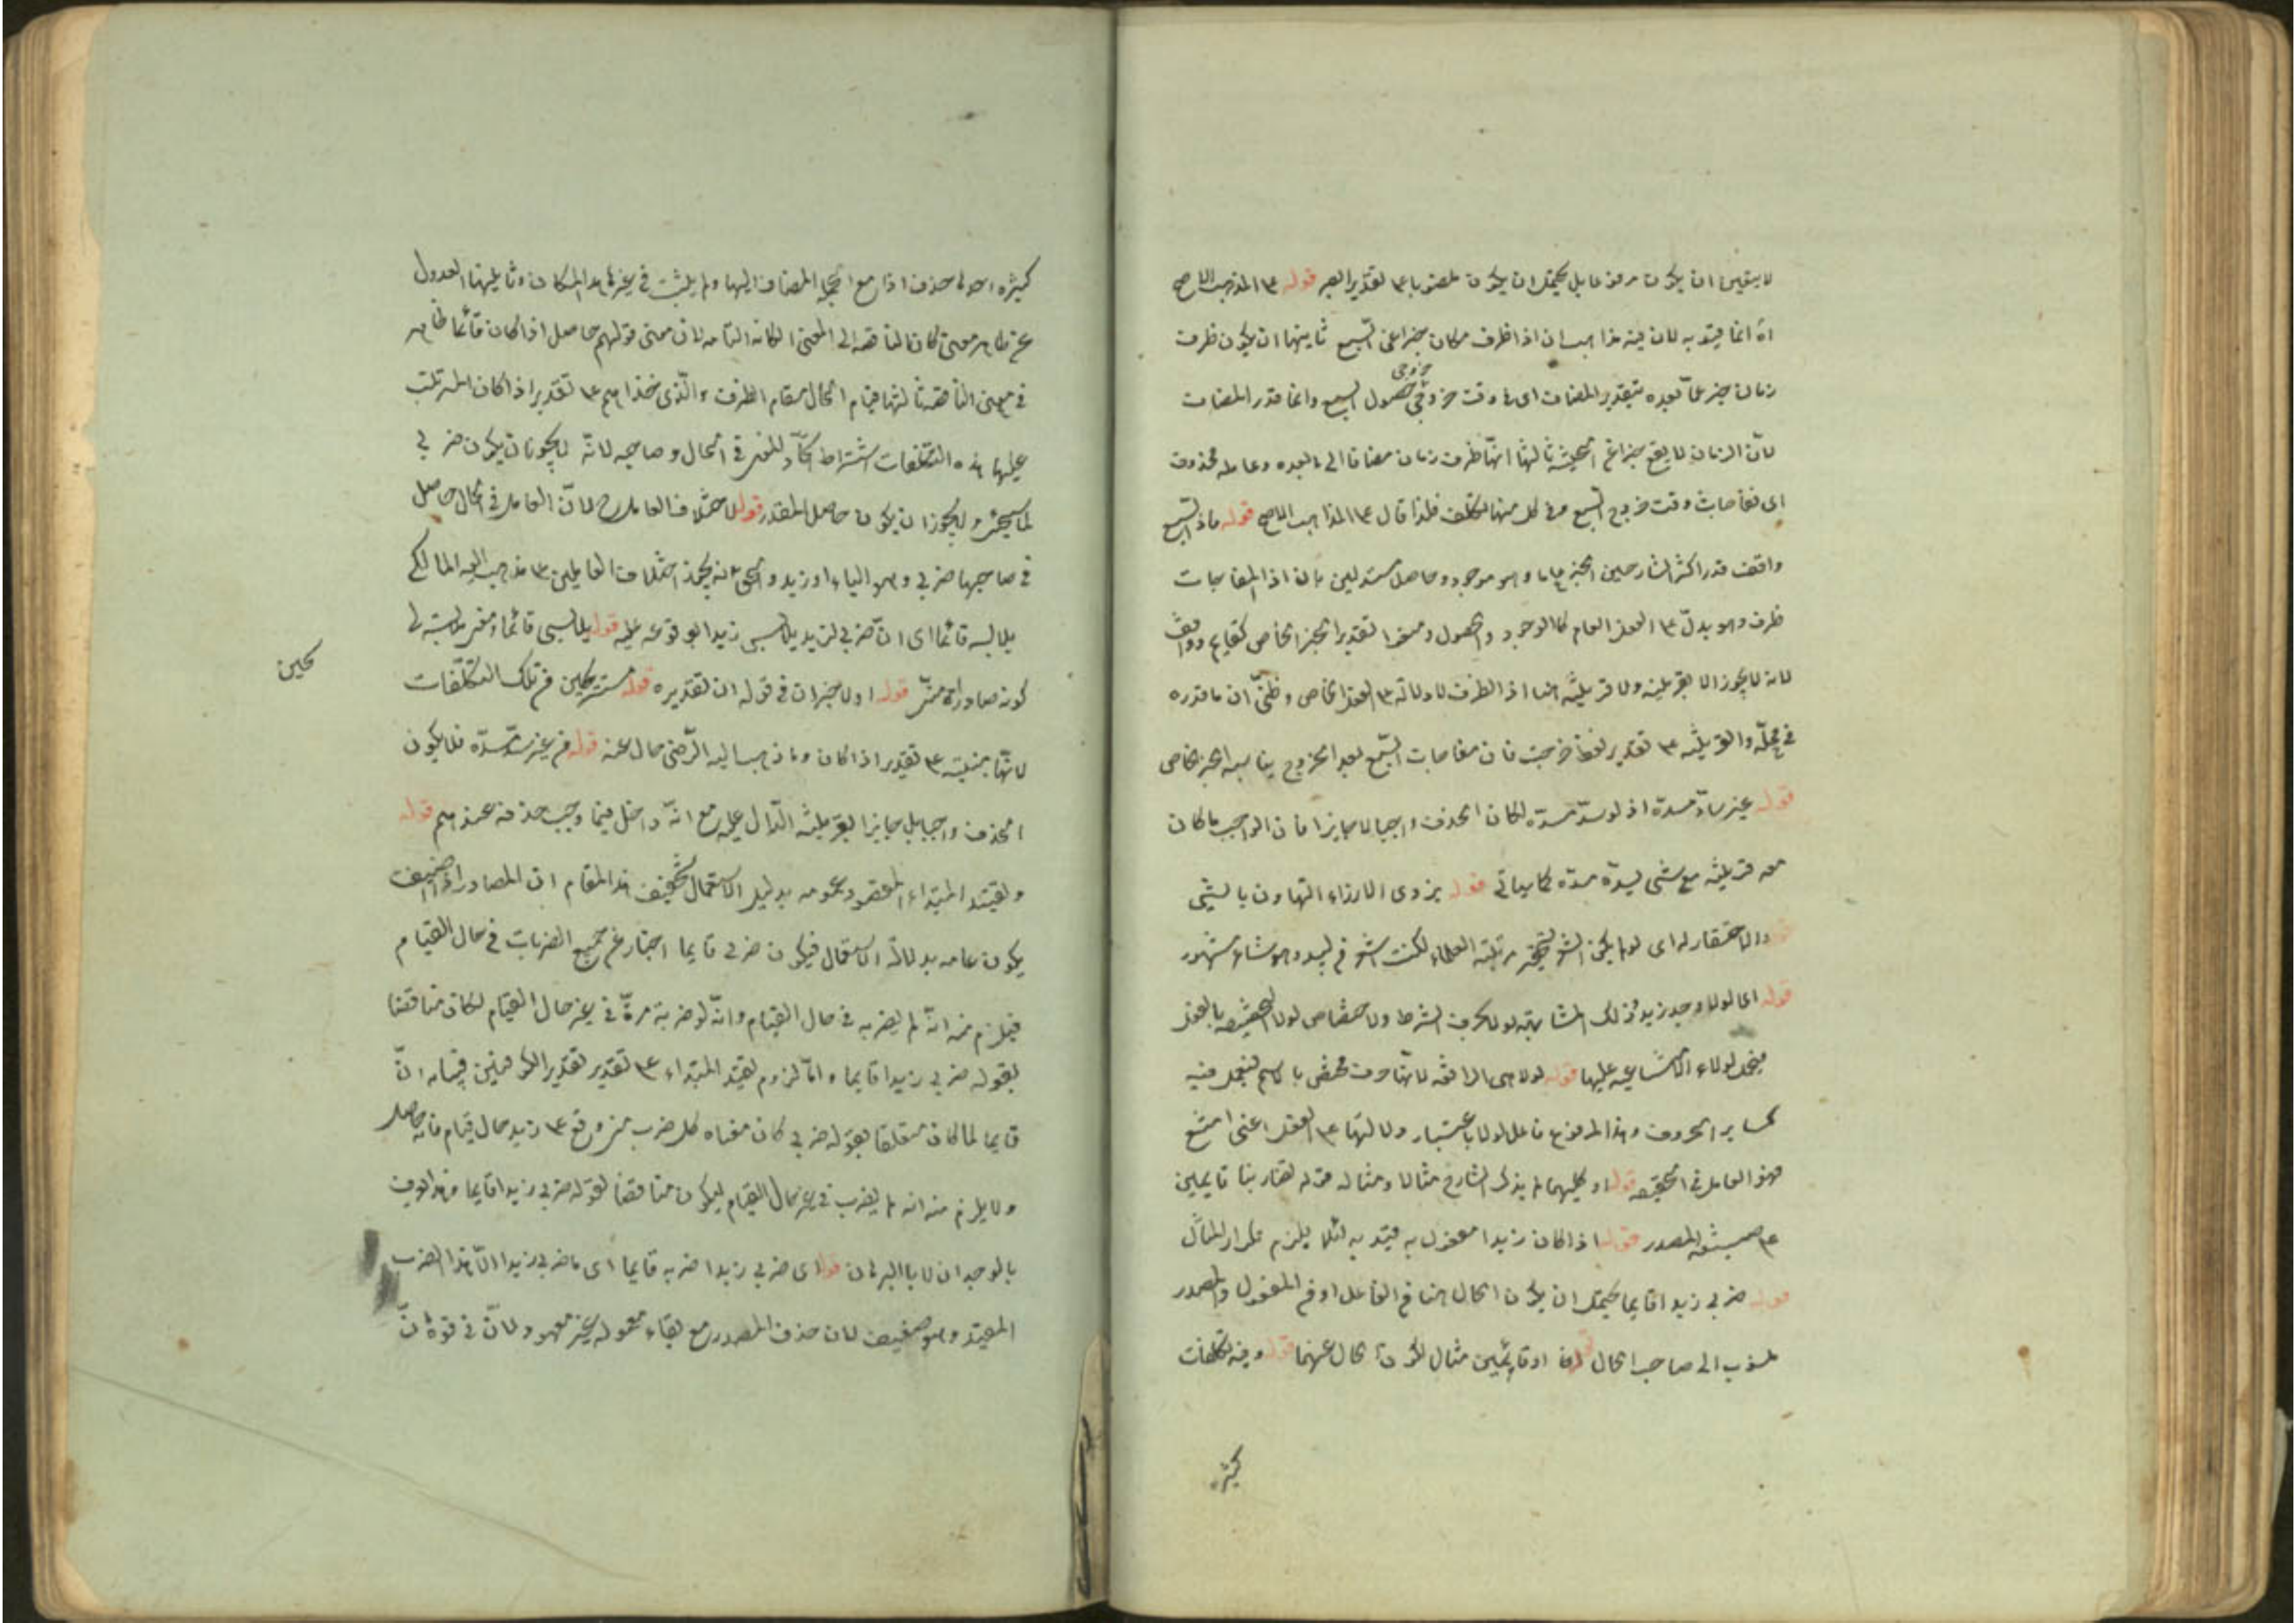 لا يتعين ان يكون مرفوعا بل يحتمل ان يكون منصوبا على تقدير الصبر قوله على المذهب الاصح
اه انما قيد به لان فيه مذاهب ان اذا ظرف مكان خبرا عن السبع ثانيتها ان يكون ظرف
زمان خبر عما بعده بتقدير المضاف اى فا وقت خروجى حصول السبع وانما قدر المضاف
خروجى
لان الزمان لا يقع خبرا عن الجثة ثالثها انها ظرف زمان مضافا الى ما بعده وعامله محذوف
اى فاجأت وقت خروج السبع وفى كل منها تكلف فلذا قال على المذاهب الاصح قوله فاذا السبع
واقف قدر اكثر الشارحين الخبر عاما وهو موجود وحاصل مستدلين بان اذا المفاجات
ظرف وهو يدل على الفعل العام كالوجود والحصول ومنعوا تقدير الخبر الخاص كقايم وواقف
لانه لا يجوز الا بقرينة ولا قرينة هنا اذ الظرف لا دلالة على الفعل الخاص وظنى ان ما قدره
فى محله والقرينة على تقدير لفظ خرجت فان مفاجات السبع بعد الخروج يناسبه الخبر الخاص
قوله غير ساد مسده اذ لو سد مسده لكان الحذف واجبا لا جايزا فان الواجب ما كان
معه قرينة مع شئ يسد مسده كما سياتى قوله يزرى الازراء التهاون بالشئ
والاحتقار له اى لو لم يكن الشعر مرتبة العلماء لكنت اشعر من لبيد وهو شاعر مشهور
قوله اى لولا وجد زيد وذلك لمشابهة لو لا بحرف الشرط ولاختصاص لولا بالفعل
قوله لولا هى الرافعة لانها حرف مختص بالاسم فيعمل فيه
كساير الحروف وهذا المرفوع فاعل لولا باعتبار دلالتها على الفعل اعنى امتنع
فهو العامل فى الحقيقة قوله او كليهما لم يذكر الشارح مثالا ومثاله قوله تضاربنا قايمين
على صيغة المصدر قوله اذا كان زيدا مفعول به قيد به لئلا يلزم تكرار المثال
قوله ضربى زيدا قايما يحتمل ان يكون الحال هنا من الفاعل او من المفعول والمصدر
منسوب الى صاحب الحال قوله او قايمين مثال لكون الحال عنهما قوله وفيه تكلفات
كثيرة
كثيرة احدها حذف اذا مع الجملة المضاف اليها ولم يثبت فى غير هذا المكان وثانيتها العدول
عن ظاهر معنى كان الناقصة الى المعنى الكان التامه لان معنى قولهم حاصل اذا كان قائما ظاهر
فى معنى الناقصة ثالثها قيام الحال مقام الظرف والذى خذاهم على تقدير اذا كان
عليها هذه التكلفات اشتراط اتحاد العامل فى الحال وصاحبه لانه لا يجوز ان يكون ضربى
ولا يجوز ان يكون حاصل المقدر قوله لاختلاف العامل ح لان العامل فى الحال حاصل
فى صاحبها ضربى وهو الياء او زيد والحق انه يجوز اختلاف العاملين على مذهب المالكى
يلابسه قائما اى ان ضربى لزيد يلابس زيدا لوقوعه عليه قوله يلابسنى قائما
كونه صادرا عنى قوله اولا خبر ان فى قوله ان تقديره قوله مستريحين من تلك التكلفات
حين
لانها مبنية على تقدير اذا كان وما ذهب اليه الرضى خال عنه قوله من غير سد مسده فلا يكون
الحذف واجبا بل جايزا لقرينة الدال عليه مع انه داخل فيما وجب حذفه عندهم قوله
وتقييد المبتداء المقصود عمومه بدليل الاستعمال تحقيق هذا المقام ان المصادر اذا اضيف
يكون عامه بدلالة الاستعمال فيكون ضربى قايما اخبار عن جميع الضربات فى حال القيام
فيلزم منه انه لم يضربه فى حال القيام وانه لو ضربه مرة فى غير حال القيام لكان مناقضا
لقوله ضربى زيدا قايما واما لزوم تقييد المبتداء على تقدير تقدير الكوفيين فبيانه ان
قايما لما كان متعلقا بقوله ضربى كان معناه كل ضرب منى وقع على زيد حال قيام فانه حاصل
ولا يلزم منه انه لم يضرب فى غير حال القيام ليكون مناقضا لقوله ضربى زيدا قايما وهذا يعرف
بالوجدان لا بالبرهان قوله اى ضربى زيدا ضربه قايما اى ما ضربى زيدا الا هذا الضرب
المقيد وهو ضعيف لان حذف المصدر مع بقاء معموله غير معهود ولان فى قوة ان